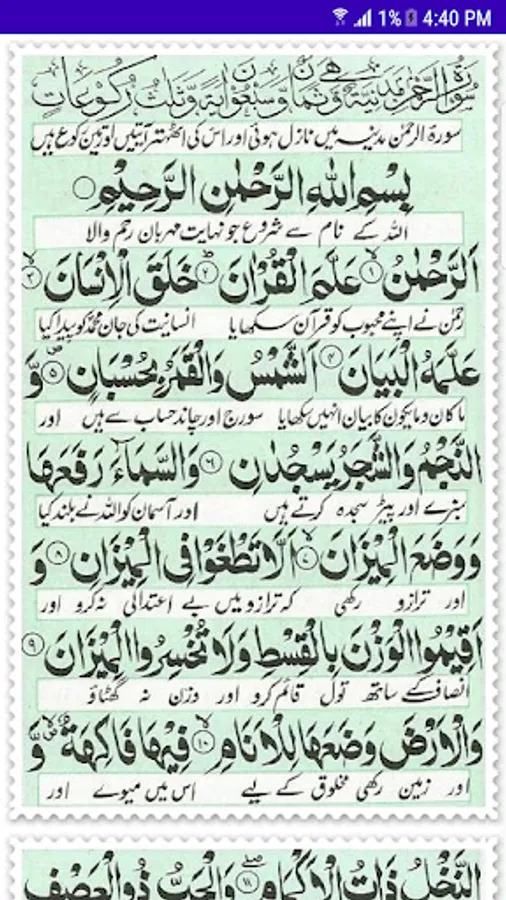 1% 4:40 PM
سُوْرَةُ الرَّحْمٰنِ مَدَنِيَّةٌ وَّهِيَ ثَمَانٌ وَّسَبْعُوْنَ اٰيَةً وَّثَلٰثُ رُكُوْعَاتٍ
سورۃ الرحمٰن مدینہ میں نازل ہوئی اور اس کی اٹھتر آیتیں اور تین رکوع ہیں
بِسْمِ اللّٰهِ الرَّحْمٰنِ الرَّحِيْمِ
اللہ کے نام سے شروع جو نہایت مہربان رحم والا
اَلرَّحْمٰنُ ۙ﴿۱﴾ عَلَّمَ الْقُرْاٰنَ ؕ﴿۲﴾ خَلَقَ الْاِنْسَانَ ۙ﴿۳﴾
رحمٰن نے اپنے محبوب کو قرآن سکھایا انسانیت کی جان محمد کو پیدا کیا
عَلَّمَهُ الْبَيَانَ ﴿۴﴾ اَلشَّمْسُ وَالْقَمَرُ بِحُسْبَانٍ ۪﴿۵﴾ وَّ
ما کان و ما یکون کا بیان انہیں سکھایا سورج اور چاند حساب سے ہیں اور
النَّجْمُ وَالشَّجَرُ يَسْجُدٰنِ ﴿۶﴾ وَالسَّمَآءَ رَفَعَهَا
سبزے اور پیڑ سجدہ کرتے ہیں اور آسمان کو اللہ نے بلند کیا
وَوَضَعَ الْمِيْزَانَ ۙ﴿۷﴾ اَلَّا تَطْغَوْا فِى الْمِيْزَانِ ﴿۸﴾ وَ
اور ترازو رکھی کہ ترازو میں بے اعتدالی نہ کرو اور
اَقِيْمُوا الْوَزْنَ بِالْقِسْطِ وَلَا تُخْسِرُوا الْمِيْزَانَ ﴿۹﴾
انصاف کے ساتھ تول قائم کرو اور وزن نہ گھٹاؤ
وَالْاَرْضَ وَضَعَهَا لِلْاَنَامِ ۙ﴿۱۰﴾ فِيْهَا فَاكِهَةٌ وَّ
اور زمین رکھی مخلوق کے لیے اس میں میوے اور
النَّخْلُ ذَاتُ الْاَكْمَامِ ۖ﴿۱۱﴾ وَالْحَبُّ ذُو الْعَصْفِ